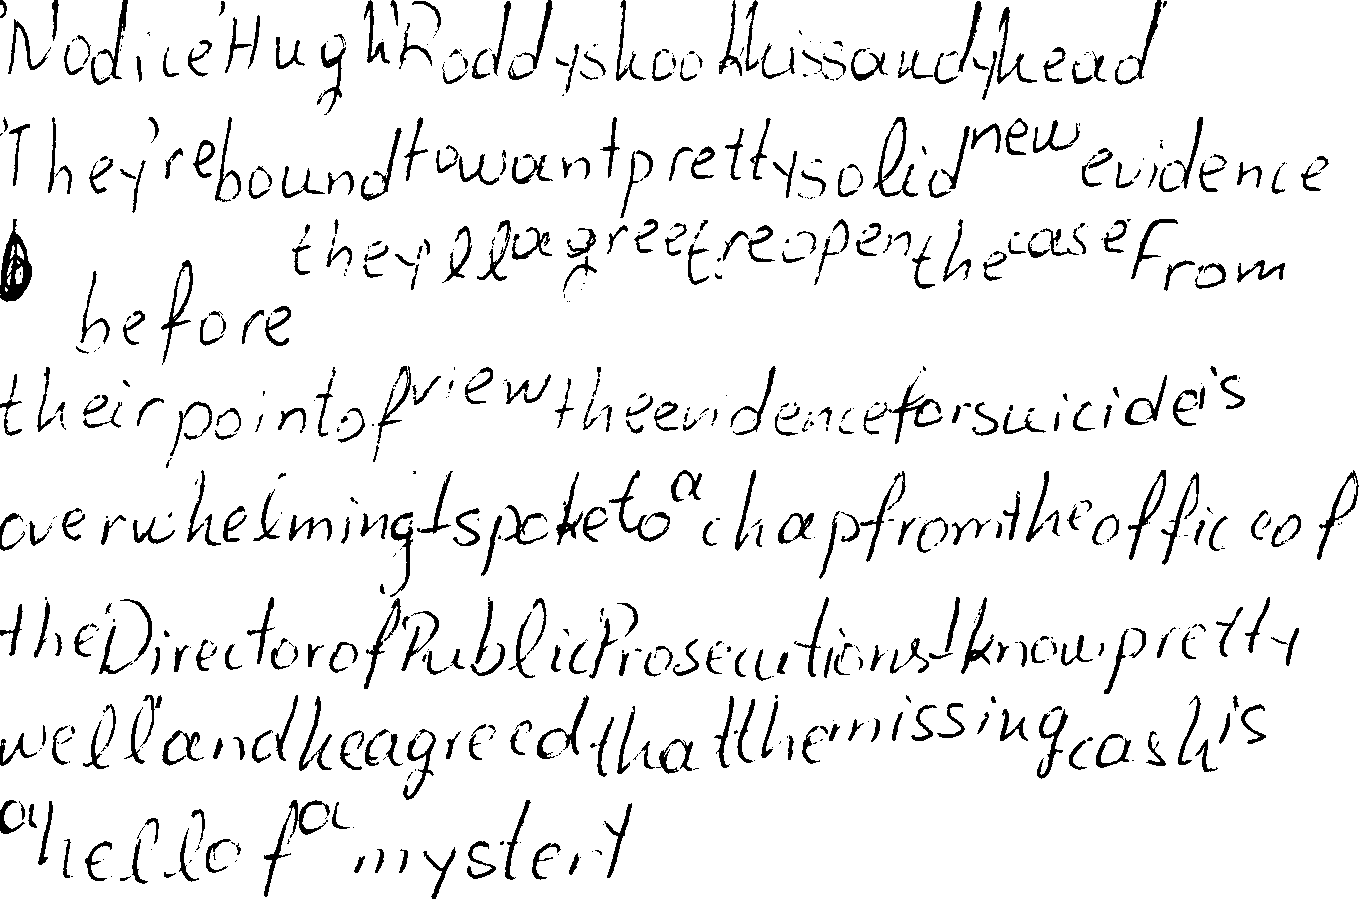 'No dice' Hugh Roddy shook his sandy head
'They're bound to want pretty solid new evidence
before they'll agree t' reopen the case From
their point of view the evidence for suicide is
overwhelming I spoke to a chap from the office of
the Director of Public Prosecutions I know pretty
well and he agreed that the missing cash is
a hell of a mystery